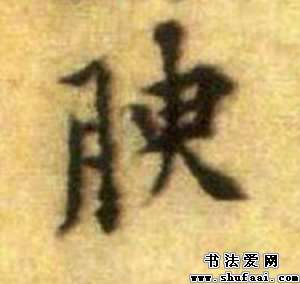 腴
书法爱网
www.shufaai.com